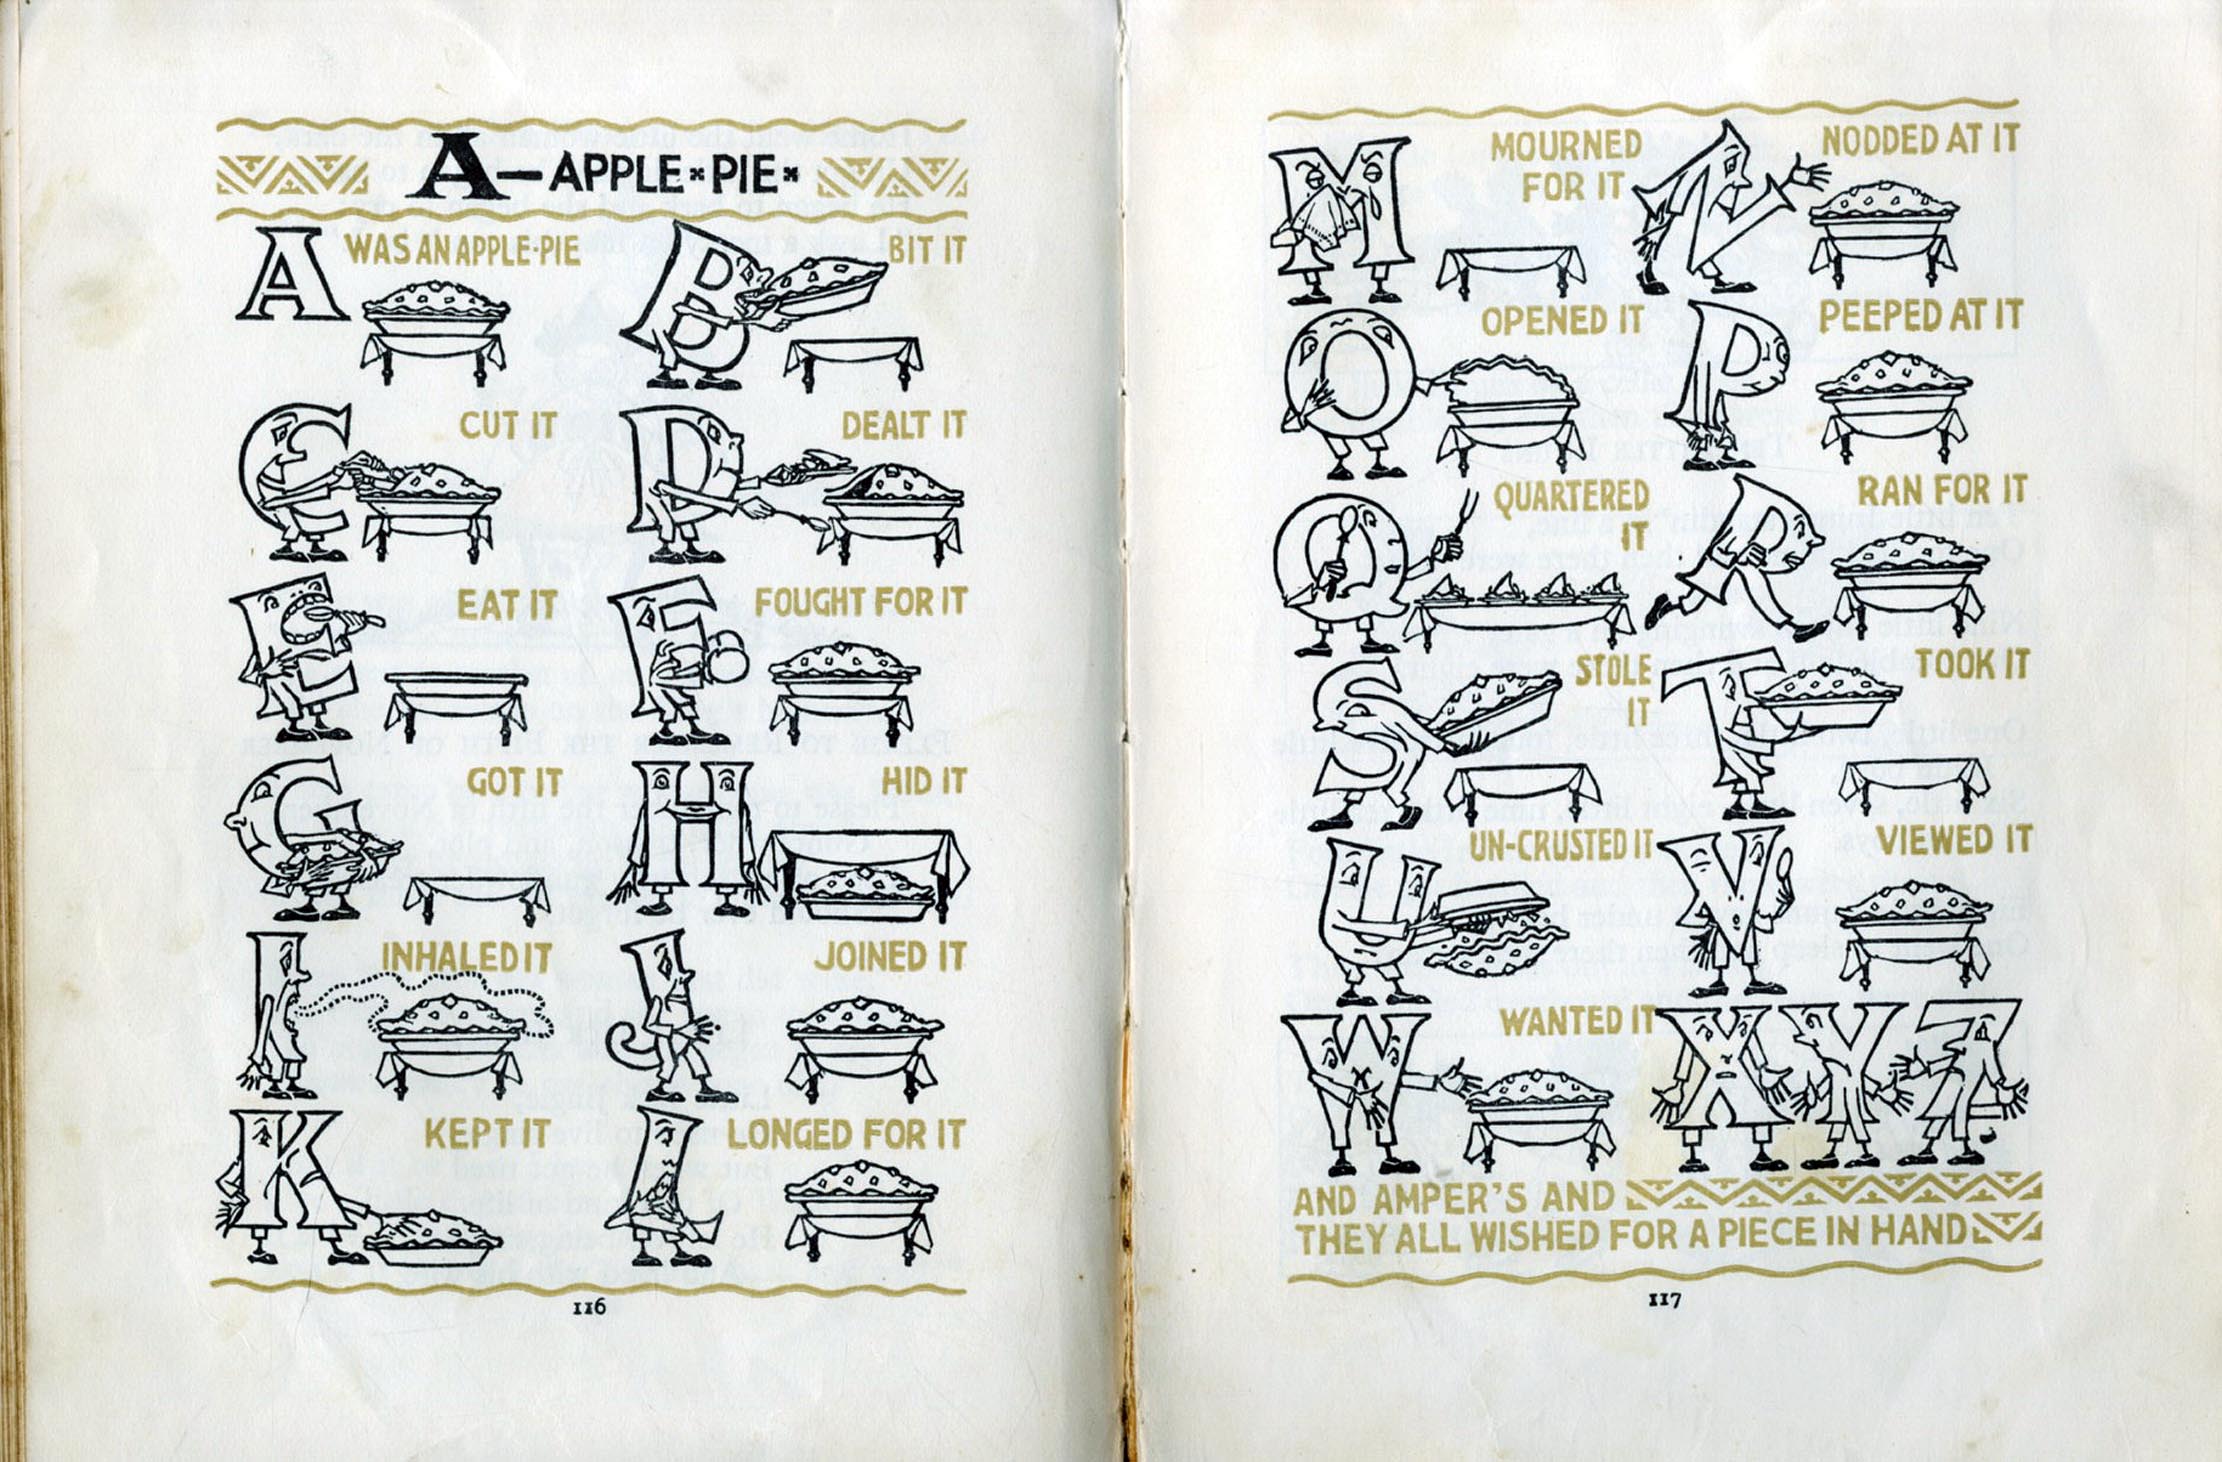 A—APPLE×PIE×
A WAS AN APPLE-PIE
B BIT IT
C CUT IT
D DEALT IT
E EAT IT
F FOUGHT FOR IT
G GOT IT
H HID IT
I INHALED IT
J JOINED IT
K KEPT IT
L LONGED FOR IT
116
M MOURNED
FOR IT
N NODDED AT IT
O OPENED IT
P PEEPED AT IT
Q QUARTERED
IT
R RAN FOR IT
S STOLE
IT
T TOOK IT
U UN-CRUSTED IT
V VIEWED IT
W WANTED IT
X Y Z
AND AMPER'S AND
THEY ALL WISHED FOR A PIECE IN HAND
117